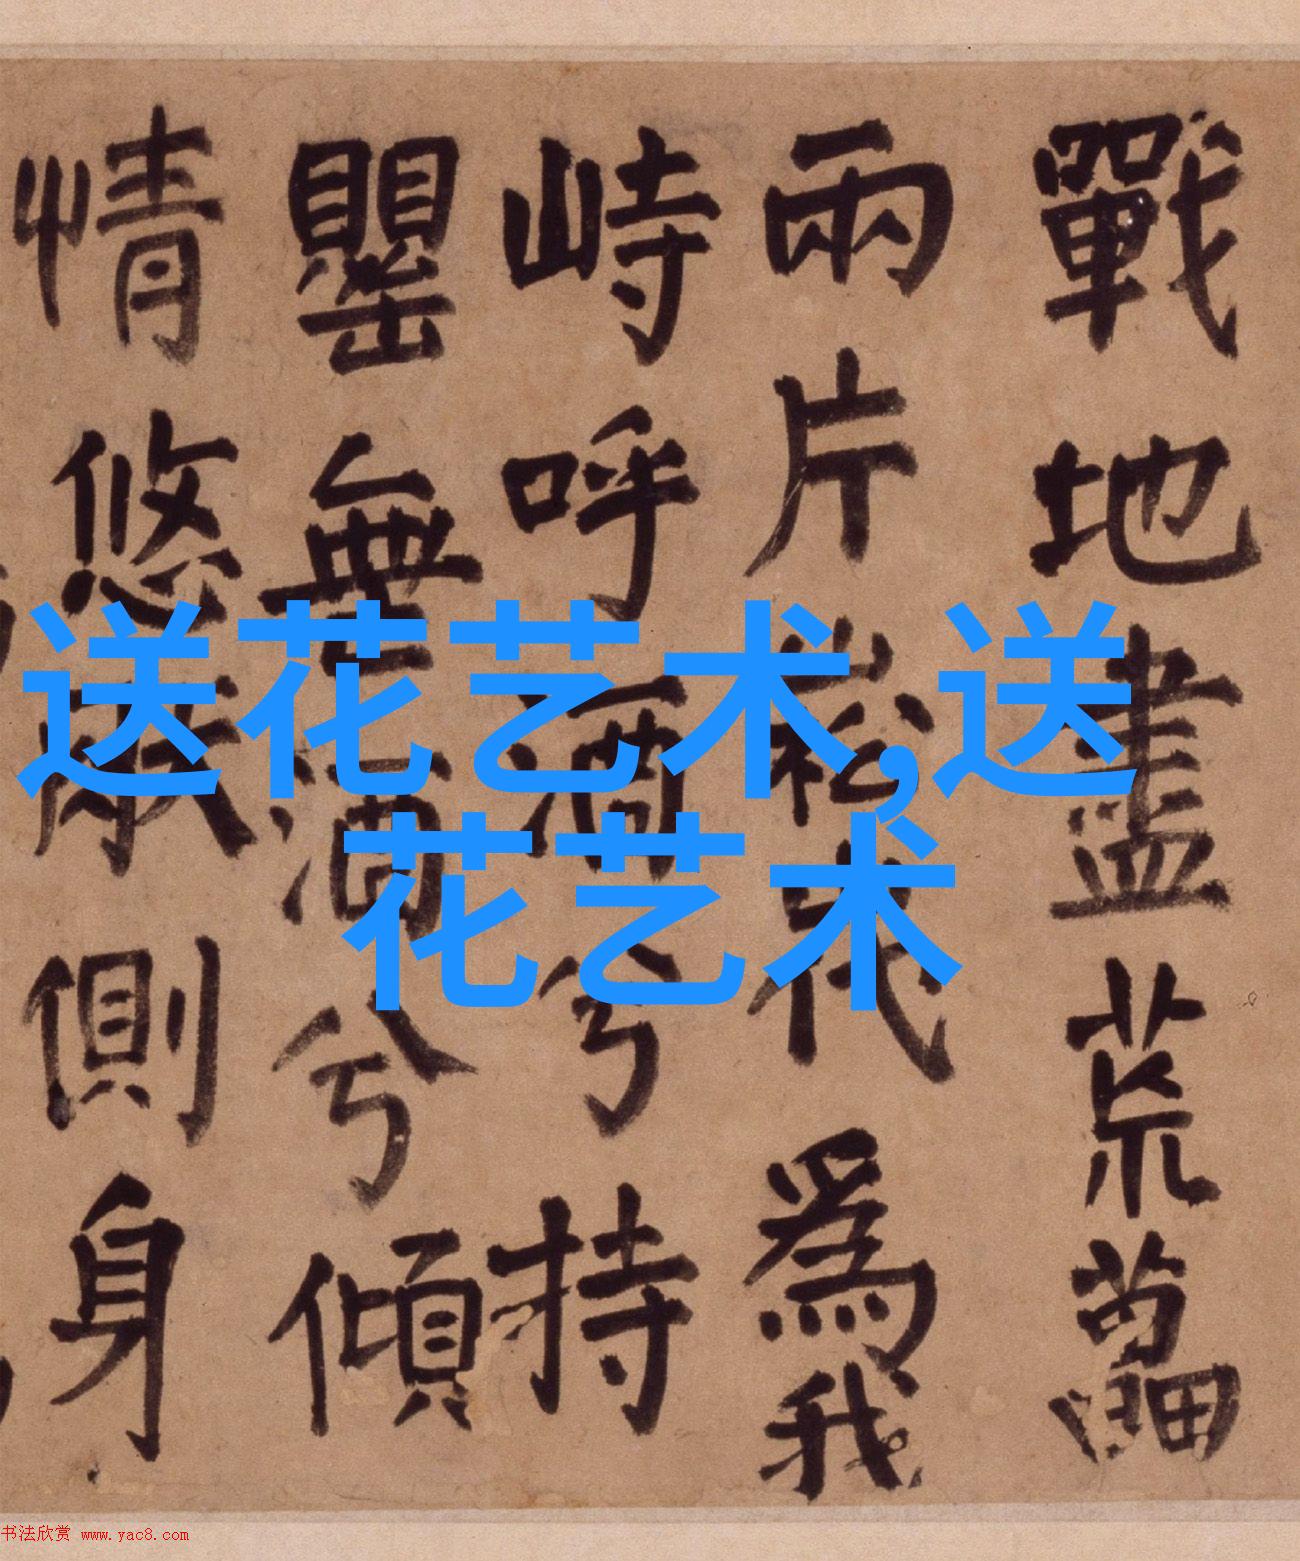 戰地盡荒
兩片代爲我
峙呼酒兮持
罌無酒兮傾
情悠側身
送花艺术,送
花艺术
书法欣赏 www.yac8.com